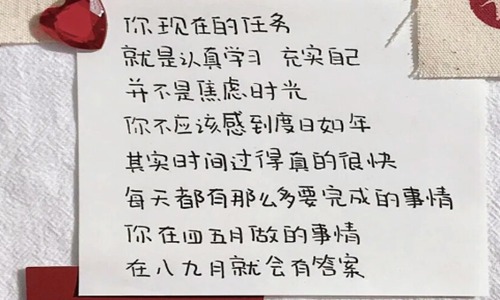 你现在的任务
就是认真学习 充实自己
并不是焦虑时光
你不应该感到度日如年
其实时间过得真的很快
每天都有那么多要完成的事情
你在四五月做的事情
在八九月就会有答案